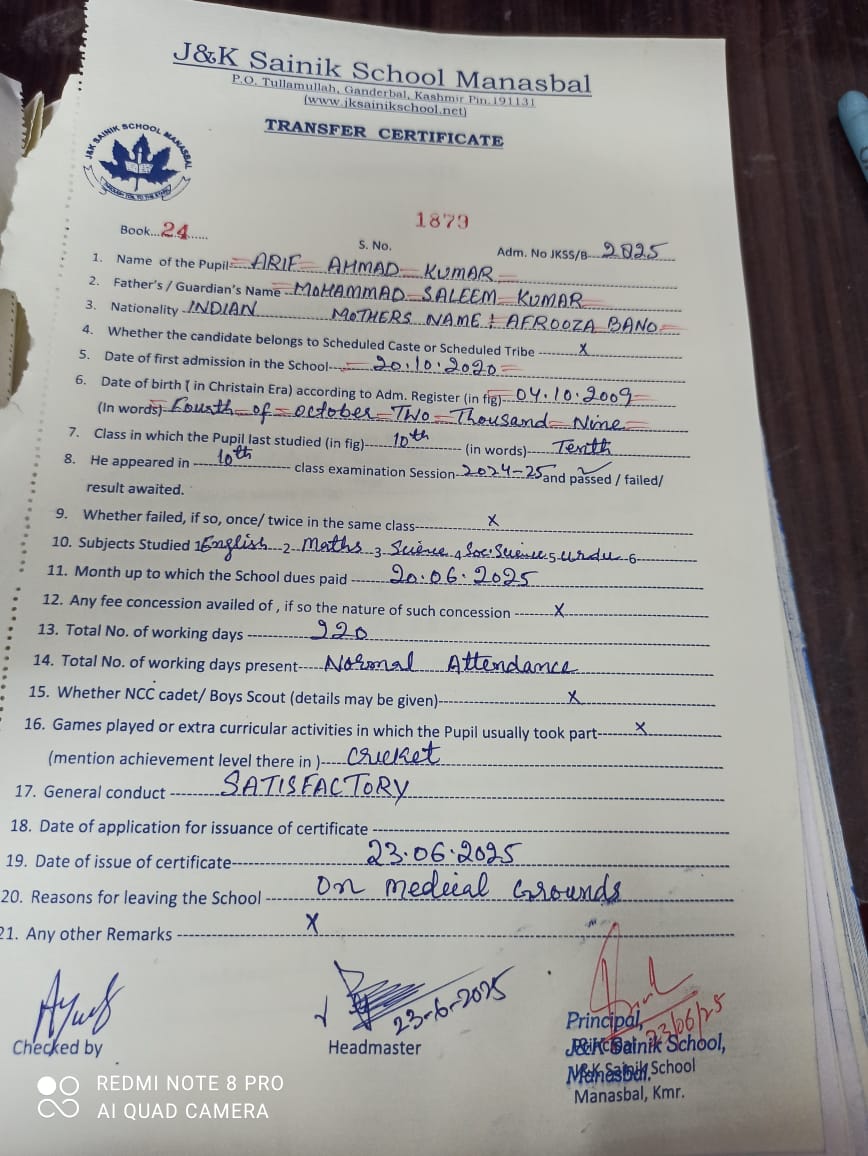 J&K Sainik School Manasbal
P.O. Tullamullah, Ganderbal, Kashmir Pin.191131
(www.jksainikschool.net)
TRANSFER CERTIFICATE
J&K SAINIK SCHOOL MANASBAL
1879
Book...24...... S. No. Adm. No JKSS/B 2025
1. Name of the Pupil ARIF AHMAD KUMAR
2. Father's / Guardian's Name MOHAMMAD SALEEM KUMAR
3. Nationality INDIAN MOTHERS NAME: AFROOZA BANO
4. Whether the candidate belongs to Scheduled Caste or Scheduled Tribe X
5. Date of first admission in the School 20.10.2020
6. Date of birth ( in Christain Era) according to Adm. Register (in fig) 04.10.2009
(In words) Fourth of October Two Thousand Nine
7. Class in which the Pupil last studied (in fig) 10th (in words) Tenth
8. He appeared in 10th class examination Session 2024-25 and passed / failed/
result awaited.
9. Whether failed, if so, once/ twice in the same class X
10. Subjects Studied 1 English 2 Maths 3 Science 4 Soc. Science 5 urdu 6
11. Month up to which the School dues paid 20.06.2025
12. Any fee concession availed of , if so the nature of such concession X
13. Total No. of working days 220
14. Total No. of working days present Normal Attendance
15. Whether NCC cadet/ Boys Scout (details may be given) X
16. Games played or extra curricular activities in which the Pupil usually took part X
(mention achievement level there in ) Cricket
17. General conduct SATISFACTORY
18. Date of application for issuance of certificate
19. Date of issue of certificate 23.06.2025
20. Reasons for leaving the School On medical Grounds
21. Any other Remarks X
23-6-2025
23/06/25
Checked by
Headmaster
Principal,
J&K Sainik School,
Manasbal.
Principal
J&K Sainik School
Manasbal, Kmr.
REDMI NOTE 8 PRO
AI QUAD CAMERA